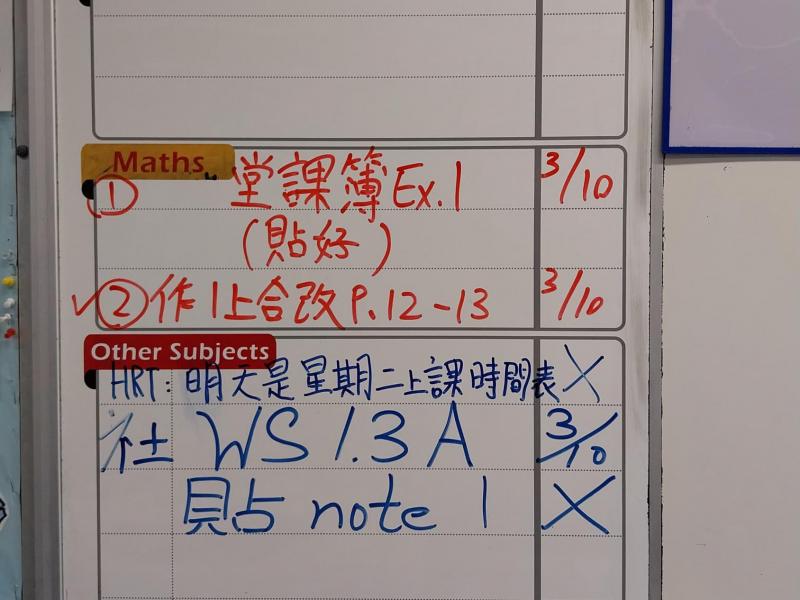 Maths
① 堂課簿Ex.1 3/10
(貼好)
✓②作1上合改P.12-13 3/10
Other Subjects
HRT: 明天是星期二上課時間表 X
社 WS 1.3A 3/10
貼 note 1 X